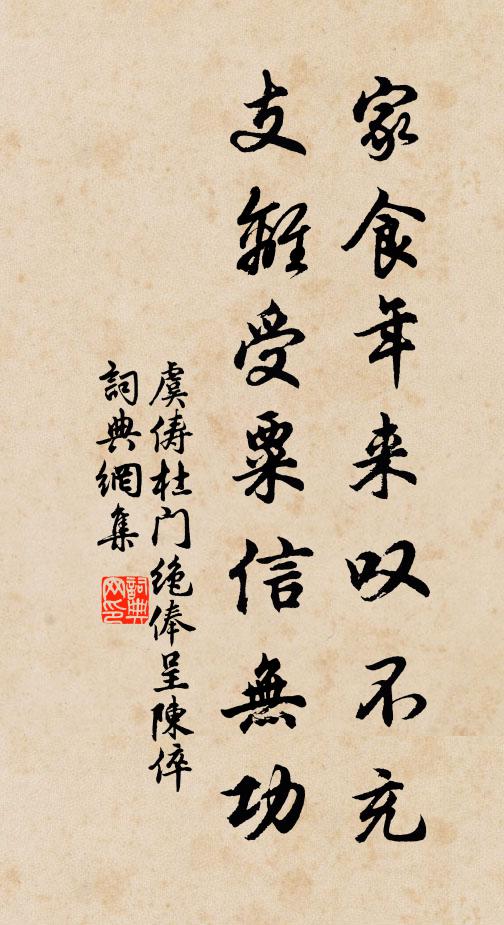 家食年来叹不充
支離受粟信無功
虞俦杜门绝俸呈陳倅
詞典網集
詞典网印